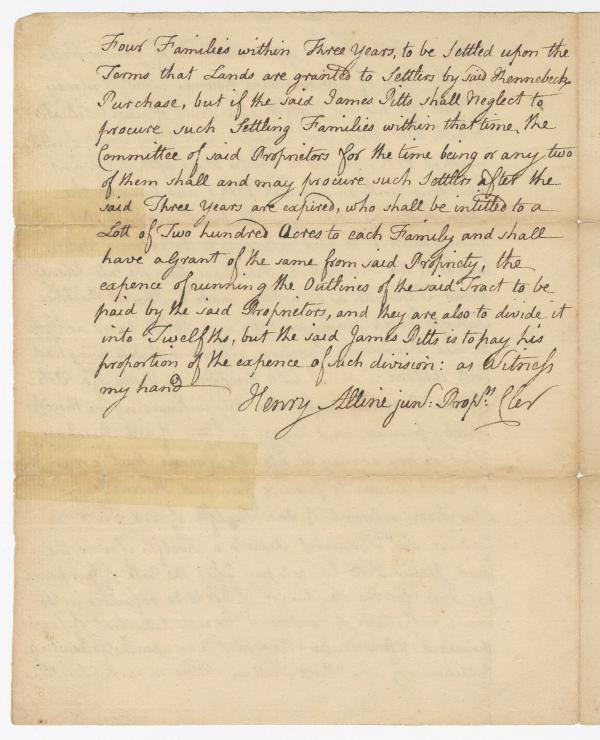 Four Families within Three Years, to be Settled upon the
Terms that Lands are granted to Settlers by said Kennebeck
Purchase, but if the said James Pitts shall Neglect to
procure such Settling Families within that time, the
Committee of said Proprietors for the time being or any two
of them shall and may procure such Settlers after the
said Three Years are expired, who shall be intitled to a
Lott of Two hundred Acres to each Family and shall
have a Grant of the same from said Propriety, the
expence of running the Outlines of the said Tract to be
paid by the said Proprietors, and they are also to divide it
into Twelfths, but the said James Pitts is to pay his
proportion of the expence of such division: as Witness
my hand
Henry Alline junr: Proprs Cler